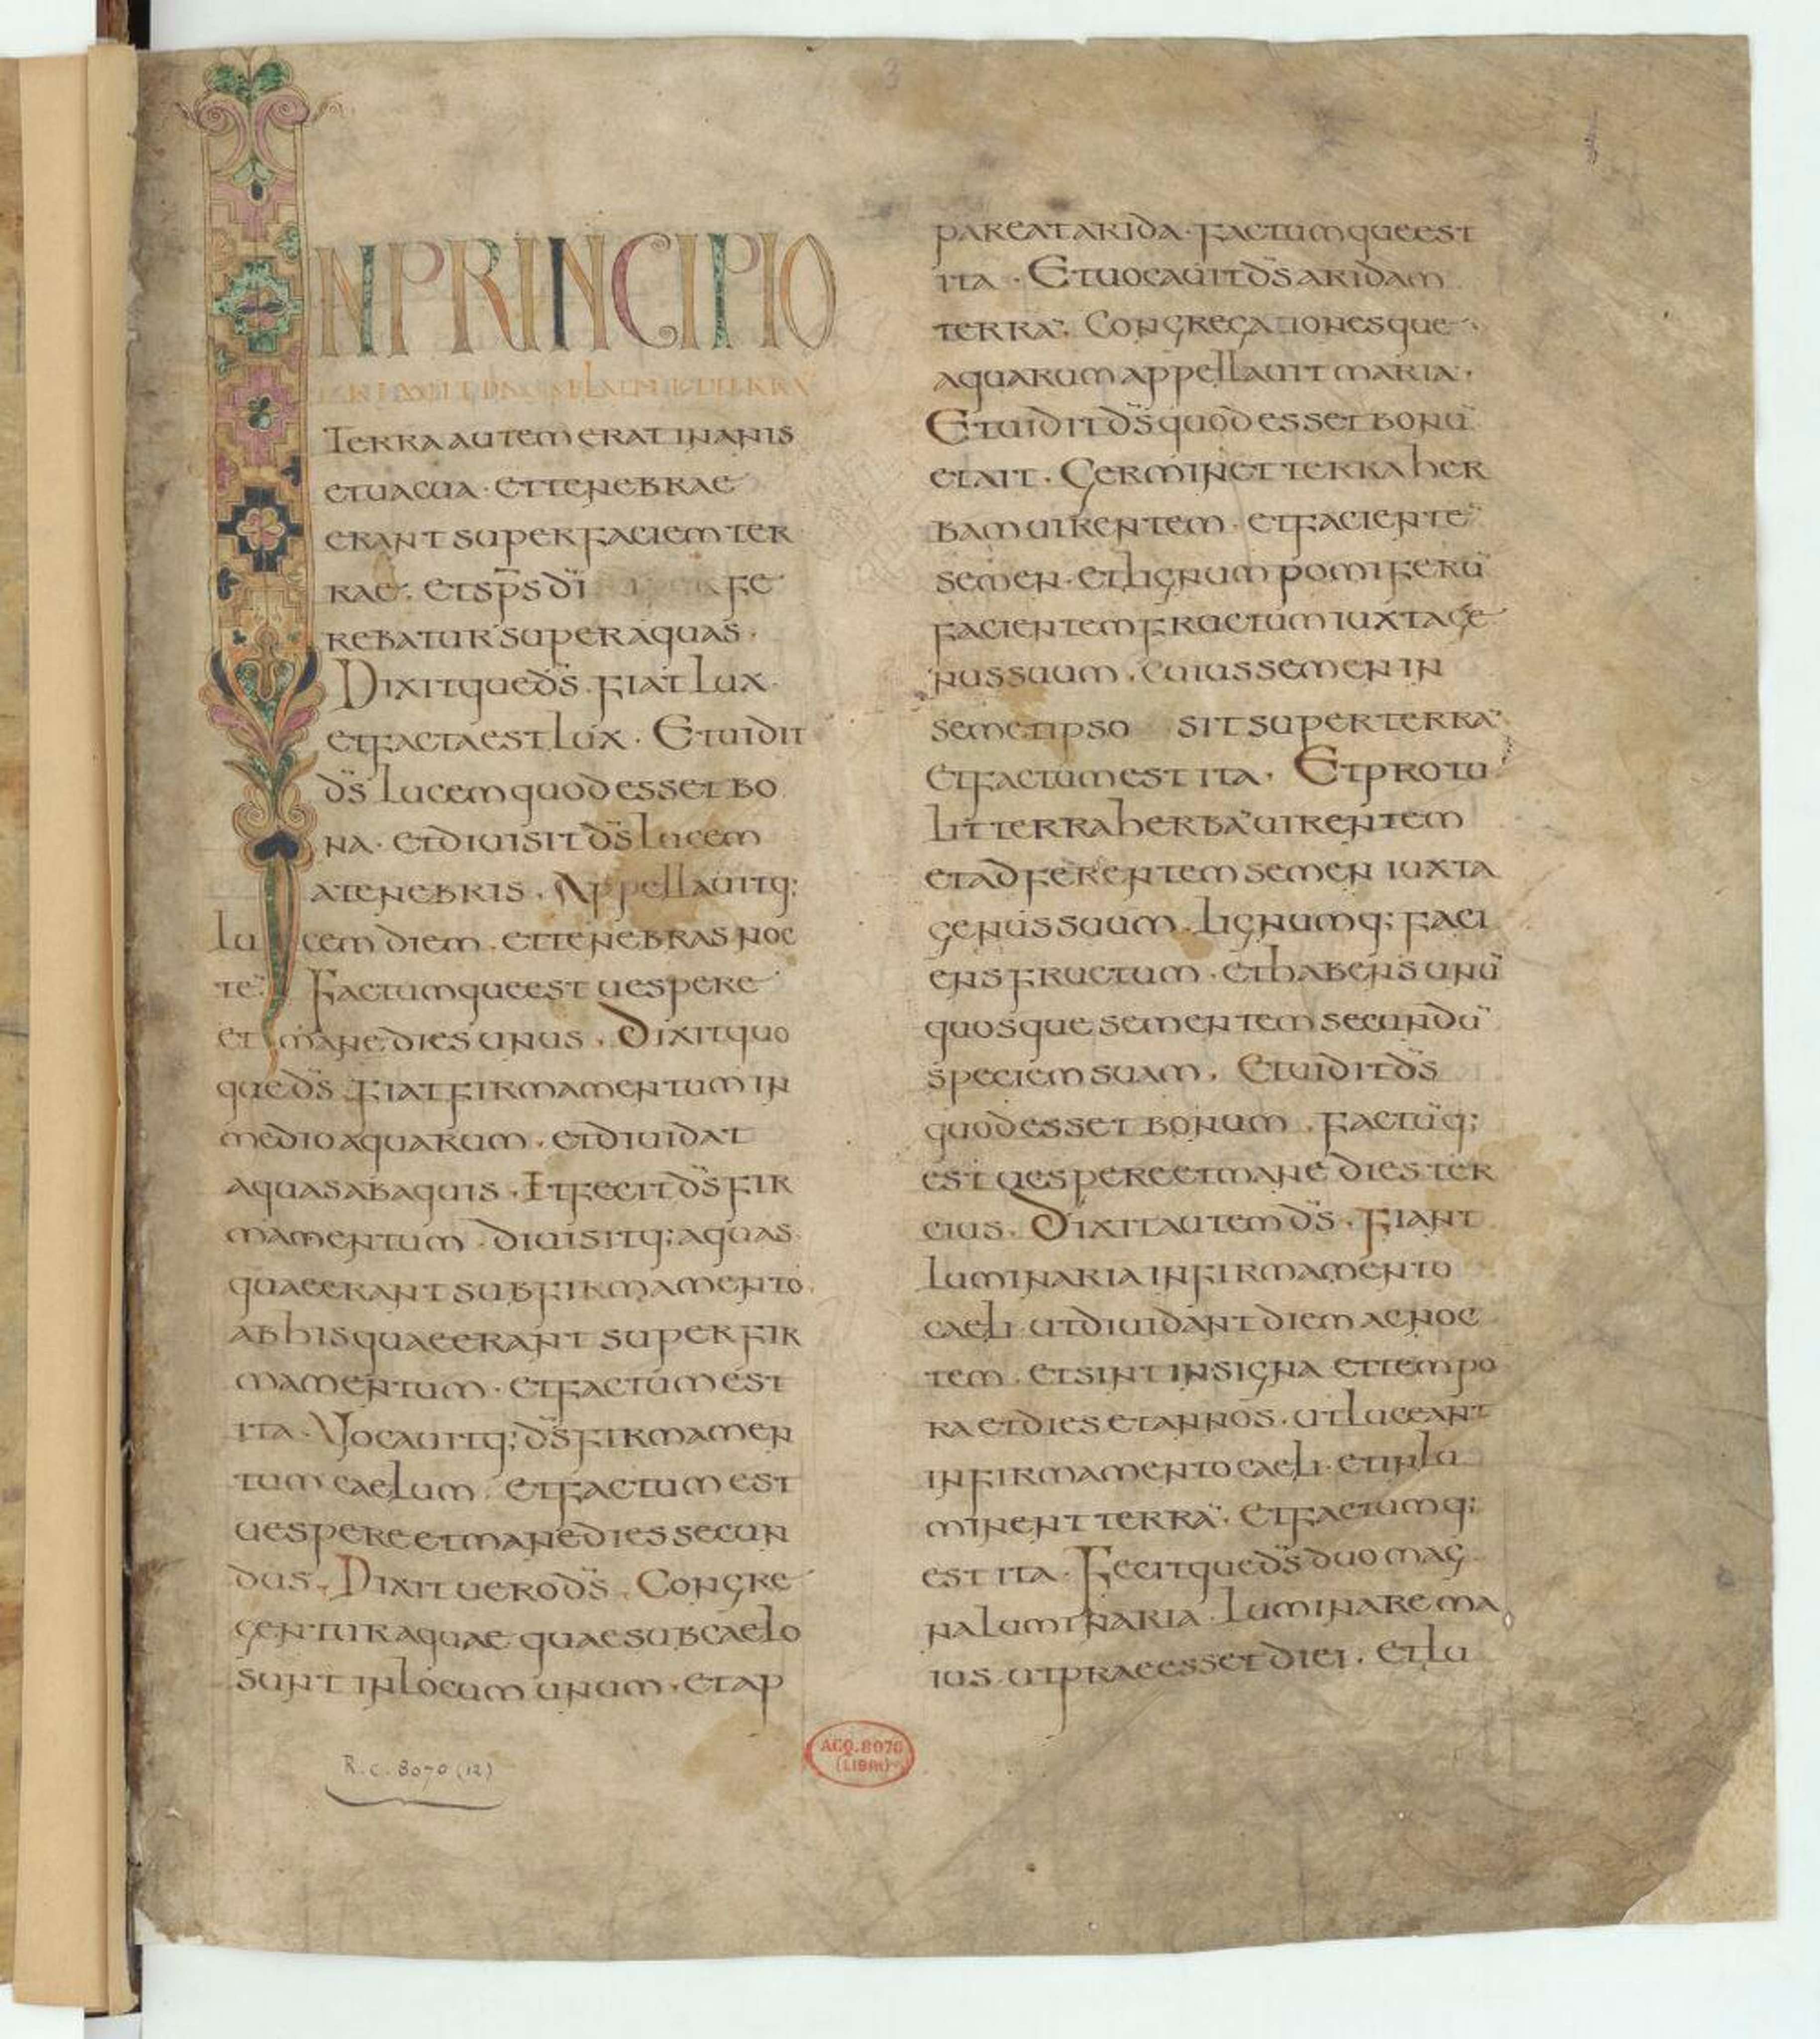 IN PRINCIPIO
CREAVIT DS CAELUM ET TERRA
Terra autem erat inanis
et vacua · et tenebrae
erant super faciem ter
rae · et sps di fe
rebatur super aquas ·
Dixitque ds · fiat lux ·
et facta est lux · Et vidit
ds lucem quod esset bo
na · et divisit ds lucem
a tenebris · Appellavitq;
lucem diem · et tenebras noc
te · Factumque est vespere
et mane dies unus · Dixit quo
que ds · fiat firmamentum in
medio aquarum · et dividat
aquas ab aquis · Et fecit ds fir
mamentum · divisitq; aquas
quae erant sub firmamento
ab his quae erant super fir
mamentum · et factum est
ita · Vocavitq; ds firmamen
tum caelum · et factum est
vespere et mane dies secun
dus · Dixit vero ds · Congre
gentur aquae quae sub caelo
sunt in locum unum · et ap
pareat arida · factumque est
ita · Et vocavit ds aridam
terrā · Congregationesque
aquarum appellavit maria ·
Et vidit ds quod esset bonū
et ait · Germinet terra her
bam virentem · et facientē
semen · et lignum pomiferū
facientem fructum iuxta ge
nus suum · cuius semen in
semetipso sit super terrā
et factum est ita · Et protu
lit terra herbā virentem
et adferentem semen iuxta
genus suum · lignumq; faci
ens fructum · et habens unū
quosque sementem secundū
speciem suam · Et vidit ds
quod esset bonum · factūq;
est vespere et mane dies ter
cius · Dixit autem ds · Fiant
luminaria in firmamento
caeli · ut dividant diem ac noc
tem · et sint in signa et tempo
ra et dies et annos · ut luceant
in firmamento caeli · et inlu
minent terrā · et factumq;
est ita · Fecitque ds duo mag
na luminaria · luminare ma
ius · ut praeesset diei · et lu
R.C. 8070 (12)
ACQ. 8070
(LIBRI)